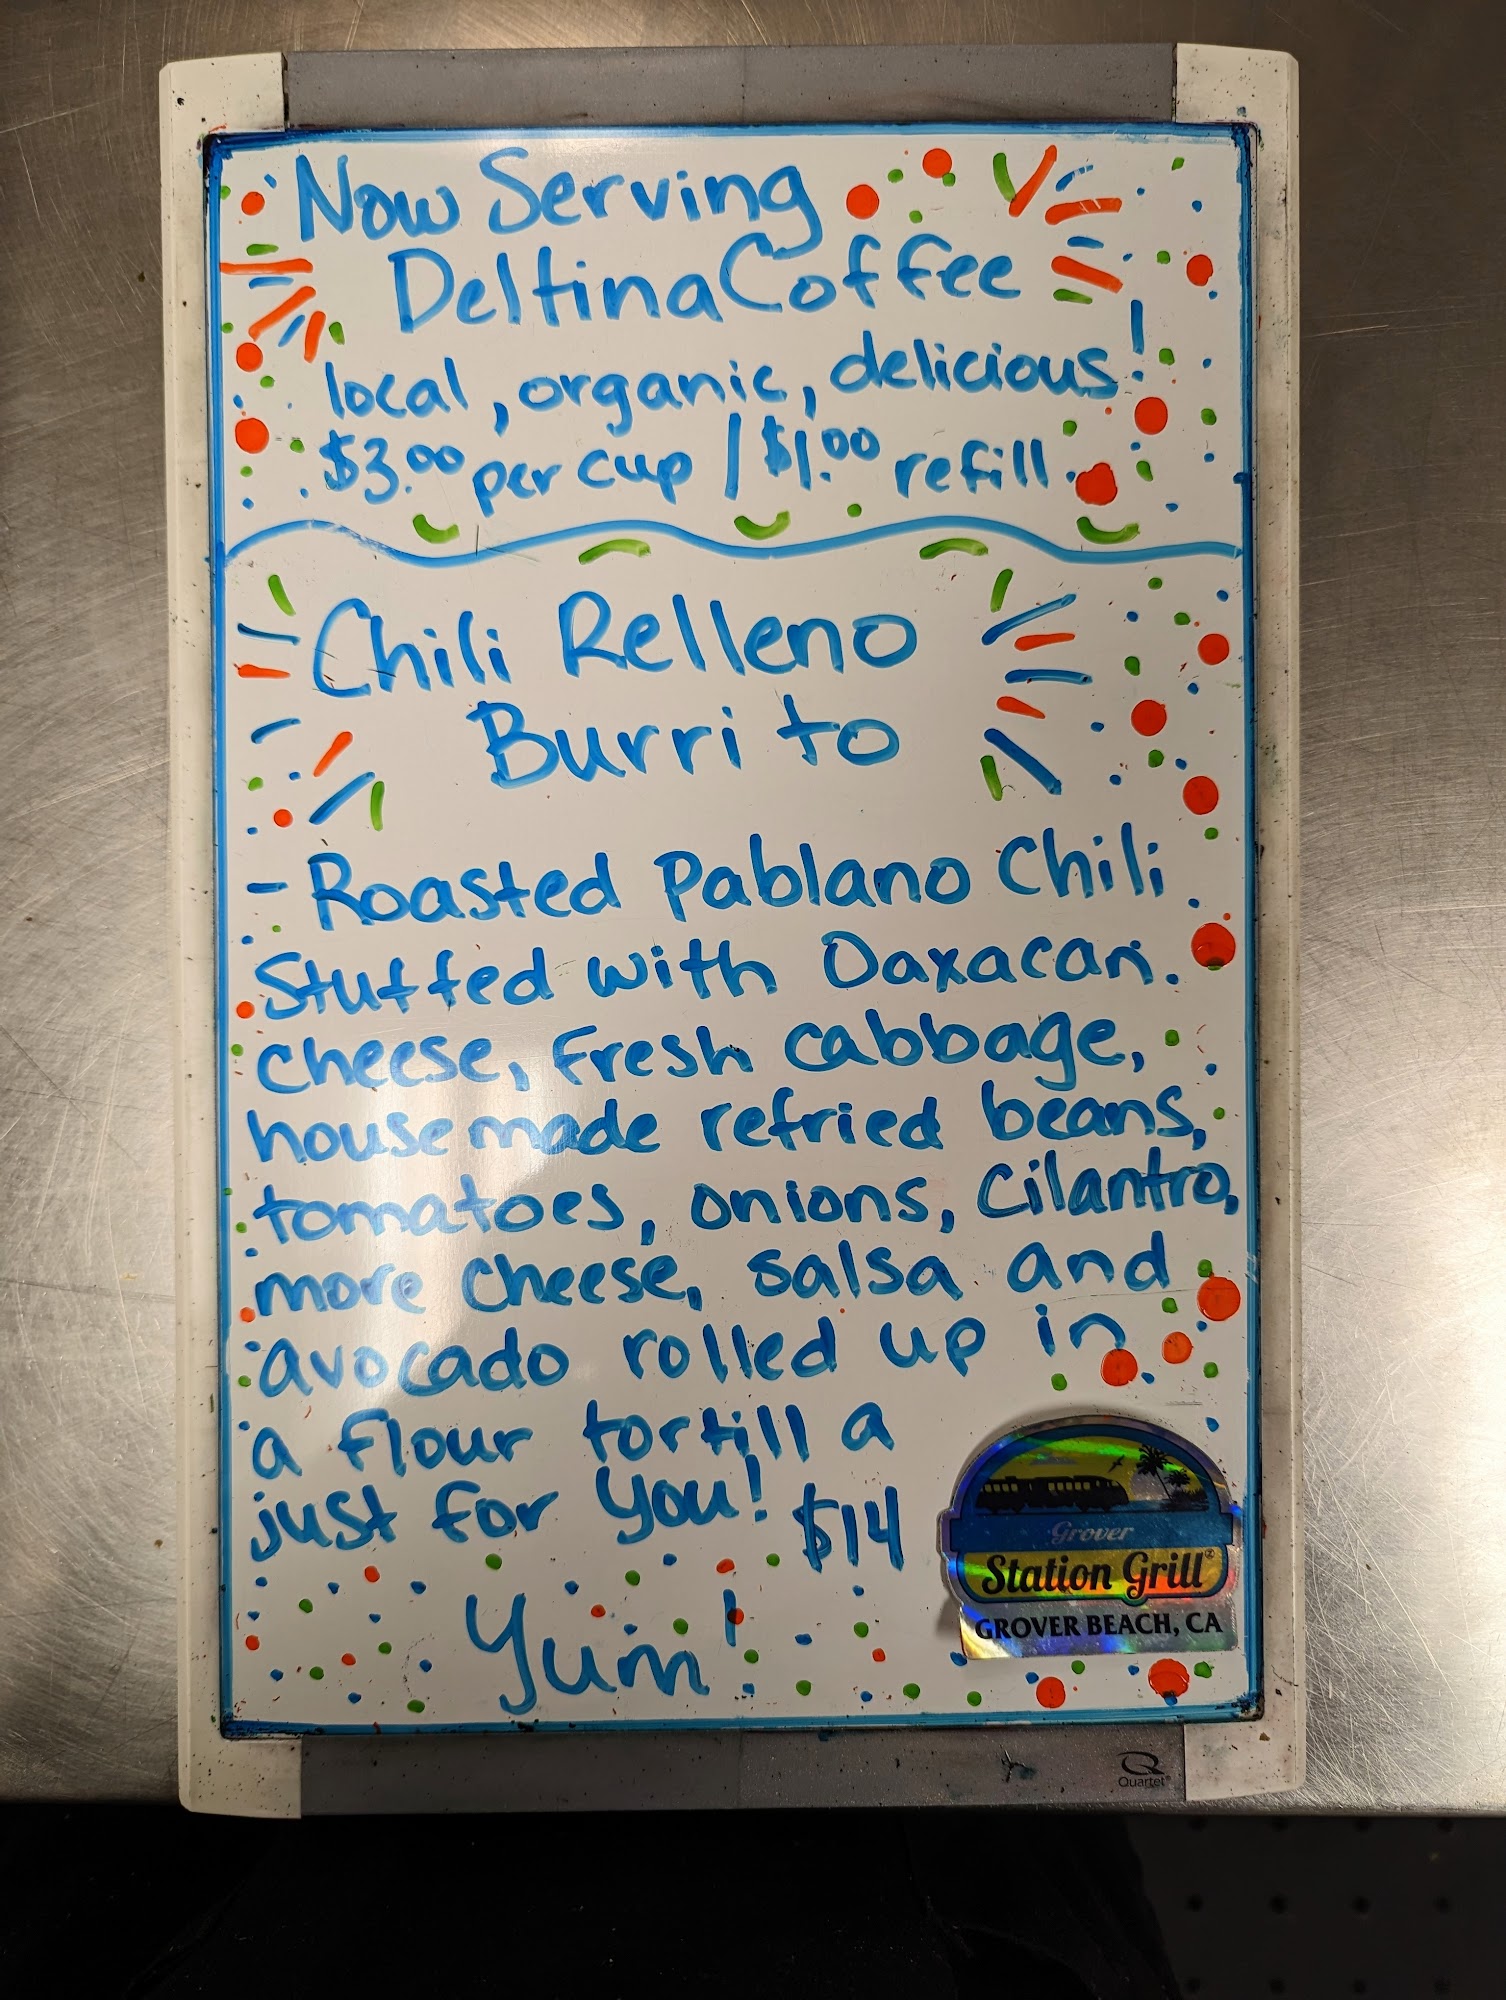 Now Serving
Deltina Coffee
local, organic, delicious!
$3.00 per cup / $1.00 refill
Chili Relleno
Burrito
- Roasted Pablano Chili
Stuffed with Oaxacan
cheese, Fresh cabbage,
housemade refried beans,
tomatoes, onions, Cilantro,
more cheese, salsa and
avocado rolled up in
a flour tortilla
just for you! $14
Yum!
Grover
Station Grill®
GROVER BEACH, CA
Quartet®